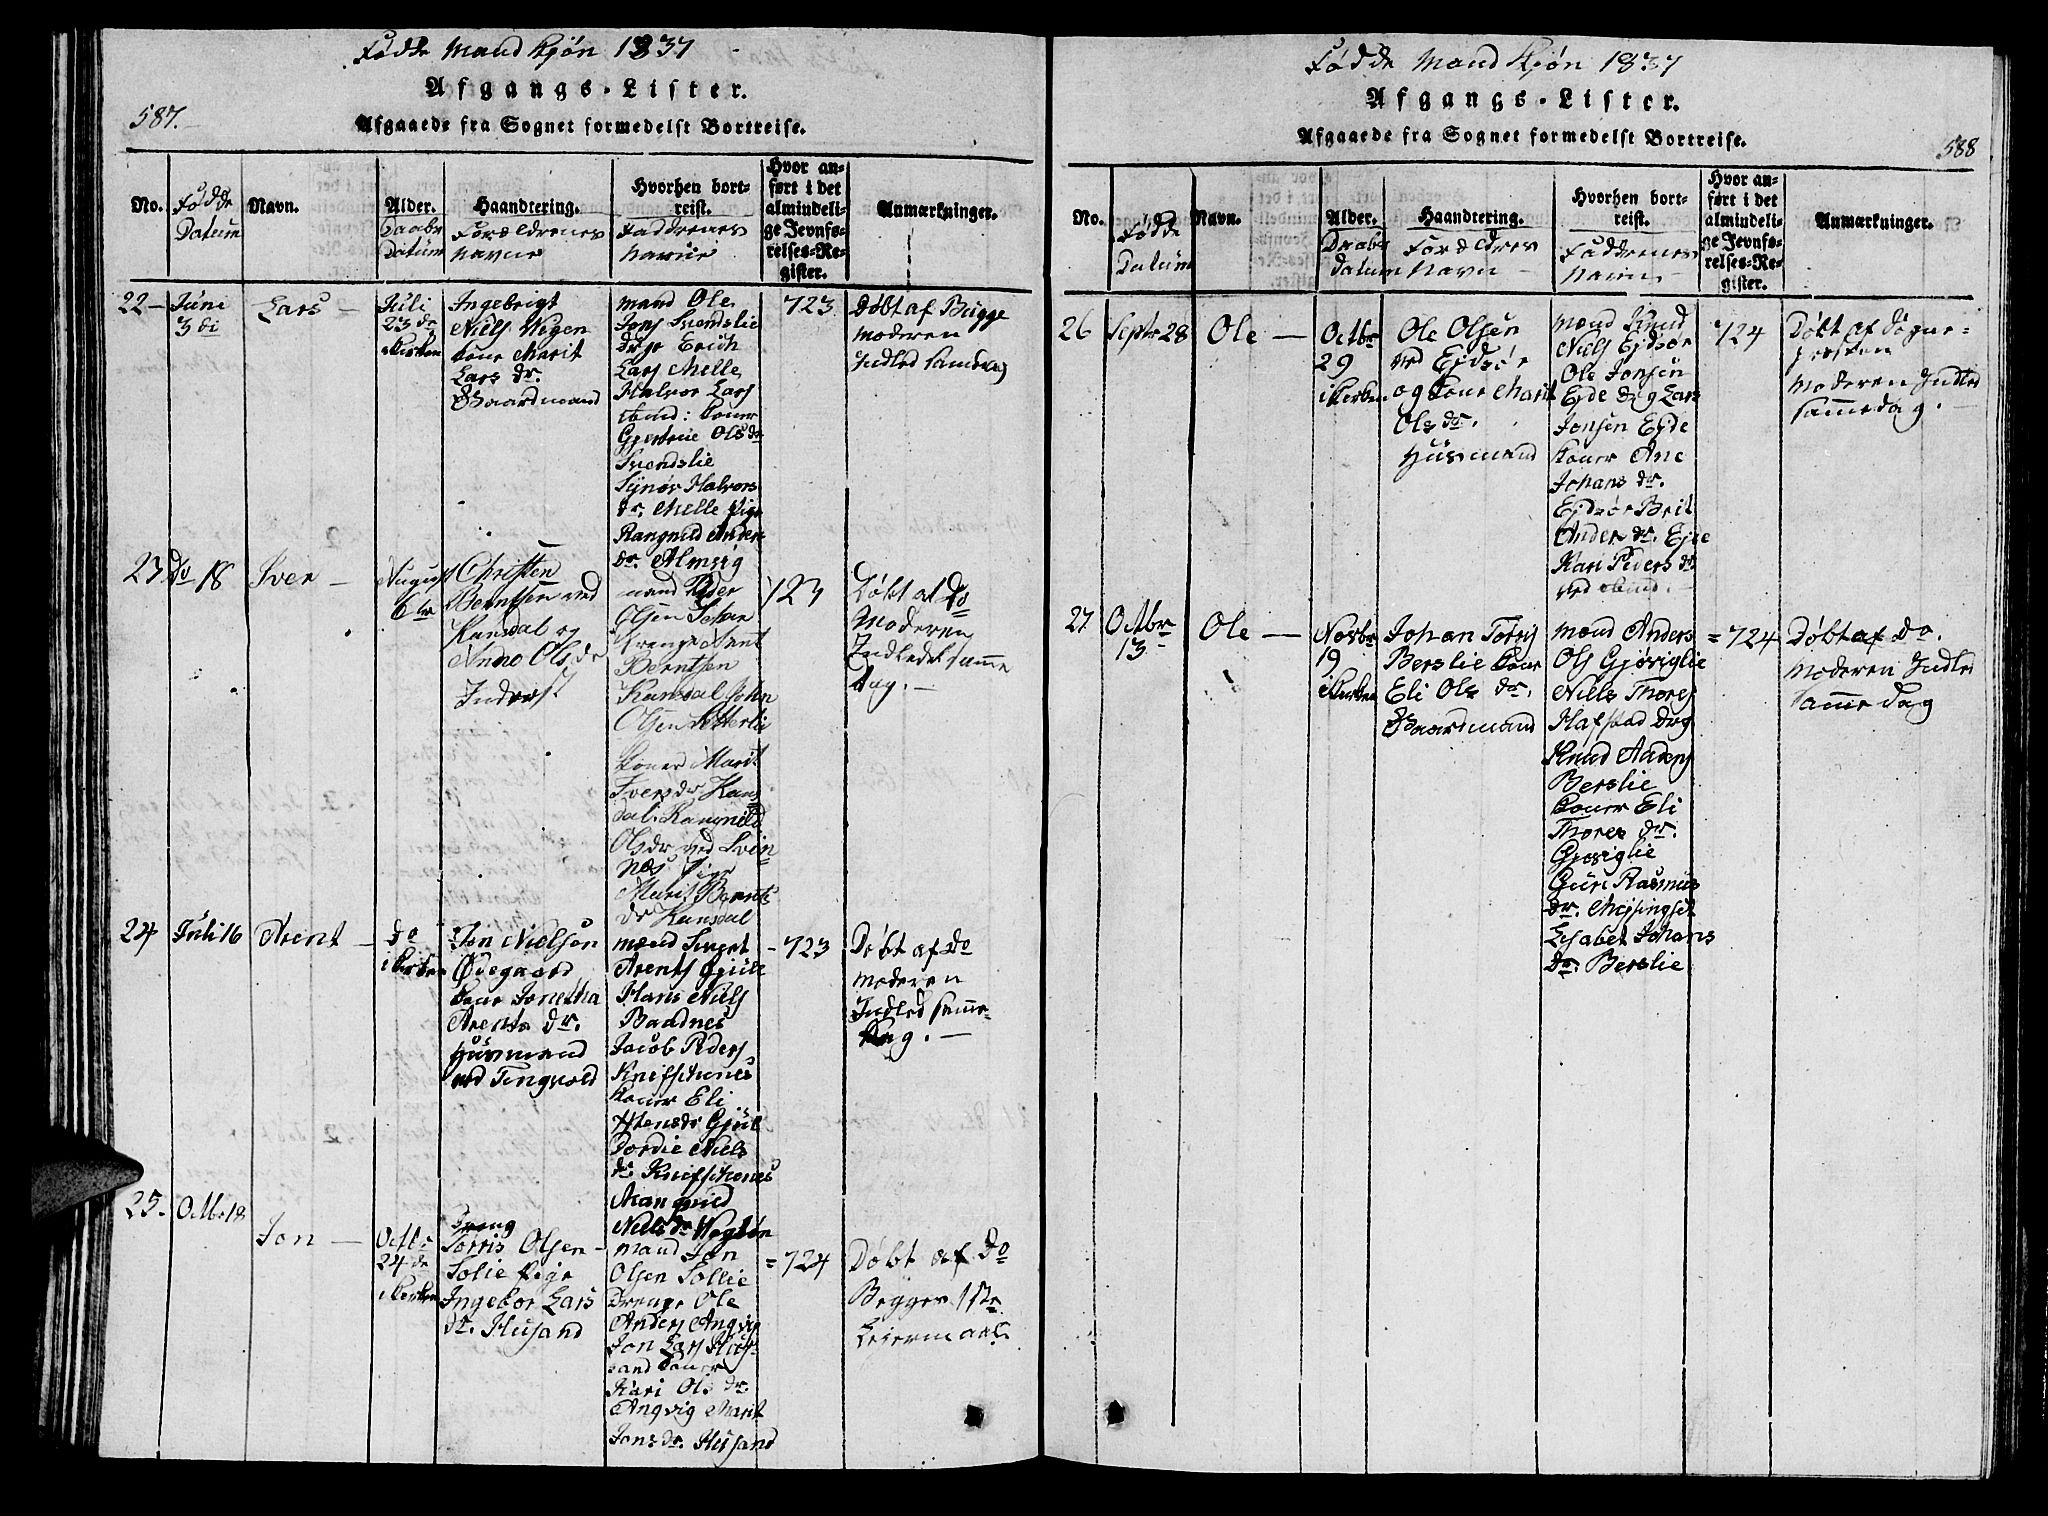 Fødde Mand Kjøn 1837
Afgangs-Lister.
587.
Afgaaede fra Sognet formedelst Bortreise.
No.
Fødde
Datum
Navn.
Alder.
Daabs
Datum
Haandtering.
Forældrenes
Navne
Hvorhen bort-
reist.
Faddrenes
Navne
Hvor an-
ført i det
almindeli-
ge Jevnfø-
relses-Re-
gister.
Anmærkninger.
22 Juni
3 di
Lars
Juli
23 de
i Kirken
Ingebrigt
Niels Wegen
Kone Marit
Lars dr.
Gaardmand
mænd Ole
Jons Svendslie
Erich
Lars Melle
Halvor Lars
Koner
Ols dr
Svendslie
Synøv Halvors
dr. Melle Pige
Rangnild Anders
dr. Almvig
723
Døbt af Bugge
Moderen
Indled samedag
23 Do 18
Iver
August
6te
Christen
Berntsen ved
Kansdal og
Anne Ols dr
Inderst
mænd Peder
Olsen
Drenge Arnt
Berntsen
Kansdal John
Olsen Sætterlie
Koner Marit
Ivers dr Kans
dal. Rangnild
Olsdr ved Svin
næs Pige
Marit Bernts
dr Kansdal
723
Døbt af Do
Moderen
Indledet samme
dag.
24 Juli 16
Arent
do
i Kirken
Jon Nielsen
Ødegaard
Kone Jonetha
Arents dr.
Husmand
ved Tingvold
mænd Sivert
Arents Gjül
Hans Niels
Baadnes
Jacob Peders
Knefschones
Koner Eli
Gjül
Dordie Niels
dr. Knefschones
Niels dr
723
Døbt af Do
Moderen
Indled samme
dag.
25. Octbr 18
Jon
Octbr
24 de
i Kirken
Dreng
Torris Olsen
Solie Pige
Ingebor Lars
dr. Husand
mænd Jon
Olsen Sollie
Drenge Ole
Anders Angvig
Jon Lars Hus-
sand Koner
Kari Ols dr.
Angvig Marit
Jons dr. Husand
= 724
Døbt af Do
Begges 1ste
Leiermaal
Fødde Mand Kjøn 1837
Afgangs-Lister.
Afgaaede fra Sognet formedelst Bortreise.
588
No.
Fødde
Datum
Navn.
Alder.
Daabs
Datum
Haandtering.
Forældres
Navn
Hvorhen bort-
reist.
Faddrenes
Navn
Hvor an-
ført i det
almindeli-
ge Jevnfø-
relses-Re-
gister.
Anmærkninger.
26 Septr 28
Ole
Octbr
29
i Kirken
Ole Olsen
ved Ejdsør
og Kone Marit
Ols dr.
Husmand
Mænd Knud
Niels Ejdsør
Ole Jonsen
Ejde og Lars
Jonsen Ejde
Koner Ane
Johans dr.
Ejdsør Brit
Anders dr. Ejde
Kari Peders dr
ved
724
Døbt af Sogne-
presten
Moderen Indled
samme dag.
27 Octbr
13
Ole
Novbr
19
i Kirken
Johan Torris
Berslie Kone
Eli Ols dr.
Gaardmand
Mænd Anders
Ols Gjøviglie
Niels Thores
Hafstad og
Knud Anders
Berslie
Koner Eli
Thores dr.
Gjøviglie
Guri Rasmus
dr. Mejsingset
Lisabet Johans
Dr. Berslie
= 724
Døbt af Do.
Moderen Indled
samme Dag